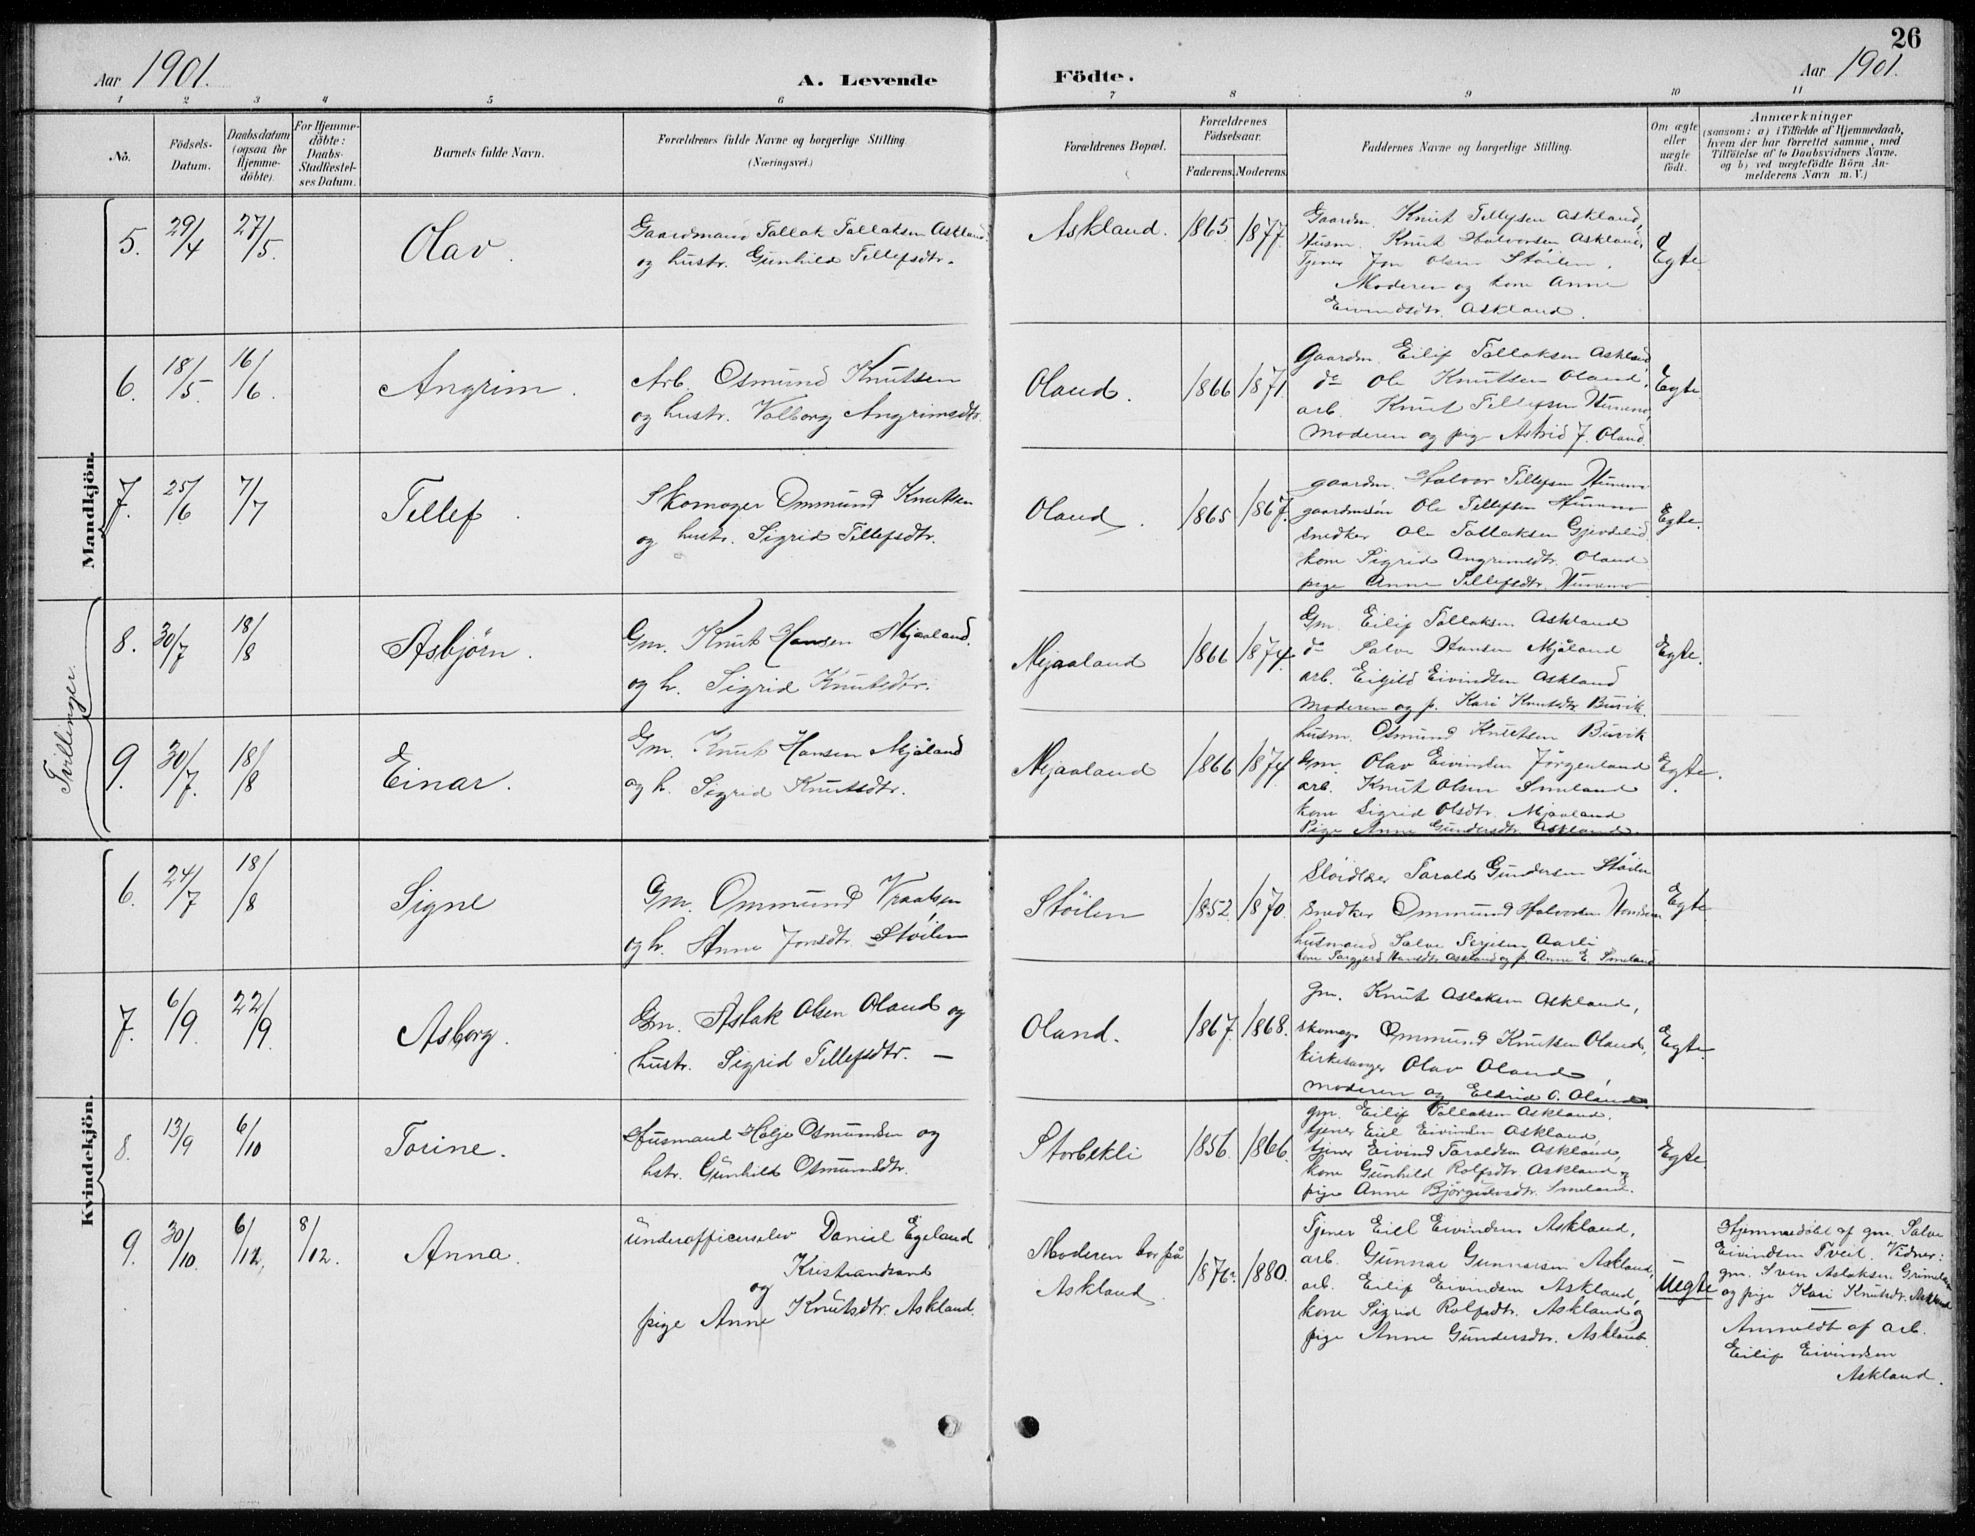 26
Aar 1901.
A. Levende
Födte.
Aar 1901.
1 2 3 4 5 6 7 8 9 10 11
No.
Födsels-
Datum.
Daabsdatum
(ogsaa for
Hjemme-
döbte).
For Hjemme-
döbte:
Daabs-
Stadfæstel-
ses Datum.
Barnets fulde Navn.
Forældrenes fulde Navne og borgerlige Stilling
(Næringsvei.)
Forældrenes Bopæl.
Forældrenes
Födselsaar.
Faderens. Moderens.
Faddernes Navne og borgerlige Stilling.
Om ægte
eller
uægte
födt.
Anmærkninger
(saasom: a) i Tilfælde af Hjemmedaab,
hvem der har forrettet samme, med
Tilföielse af to Daabsvidners Navne.
og b) ved uægtefödte Börn An-
melderens Navn m. V.)
Mandkjön.
5. 29/4 27/5. Olav.
Gaardmand Tallak Tallaksen Askland
og hustr. Gunhild Tellefsdtr.
Askland. 1865. 1877.
Gaardm. Knut Tellefsen Askland,
Husm. Knut Halvorsen Askland,
Tjener Jon Olsen Stöilen.
Moderen og kone Anne
Eivindsdtr. Askland.
Egte
6. 18/5. 16/6. Angrim.
Arb. Osmund Knutsen
og hustr. Valborg Angrimsdtr.
Oland. 1866 1871.
Gaardm. Eilif Tallaksen Askland
do Ole Knutsen Oland,
arb. Knut Tellefsen
moderen og pige Astrid J. Oland.
Egte
7. 25/6 7/7 Tellef.
Skomager Ommund Knutsen
og hustr. Sigrid Tellefsdtr.
Oland. 1865 1867.
gaardm. Halvor Tellefsen
gaardmsön Ole Tellefsen
snedker Ole Tallaksen Gjevdelid
kone Sigrid Angrimsdtr. Oland
pige Anne Tellefsdtr.
Egte.
Tvillinger.
8. 30/7 18/8 Asbjörn.
Gm. Knut Hansen Mjaaland.
og h. Sigrid Knutsdtr.
Mjaaland 1866 1874.
Gm. Eilif Tallaksen Askland
do Salve Hansen Mjåland
arb. Eivindsen Askland
moderen og p. Kari Knutsdtr. Buvik.
Egte.
9. 30/7. 18/8 Einar.
Gm. Knut Hansen Mjåland
og h. Sigrid Knutsdtr.
Mjaaland 1866 1874.
husm. Osmund Knutsen Buvik
Gm. Olav Eivindsen Jörgenland
arb. Knut Olsen Smeland
kone Sigrid Olsdtr. Mjaaland
Pige Anne Gundersdtr. Askland.
Egte.
Kvindekjön.
6. 24/7 18/8 Signe
Gm. Ommund Vraalsen
og h. Anne Jonsdtr. Stöilen
Stöilen 1852. 1870.
Tarald Gundersen Stöilen
snedker Ommund Halvorsen
husmand Salve Terjesen Aarli
kone Torgjerd Hansdtr. Askland og p. Anne E. Smeland.
Egte
7. 6/9. 22/9. Asborg.
Gm. Aslak Olsen Oland og
hustr. Sigrid Tellefsdtr. —
Oland. 1867. 1868.
gm. Knut Aslaksen Askland,
skomag. Ommund Knutsen Oland,
kirkesanger Olav Oland,
moderen og Eldrid O. Oland.
Egte.
8. 13/9 6/10 Torine.
Husmand Helje Osmundsen og
hstr. Gunhild Osmundsdtr.
Storbekli 1856. 1866.
gm. Eilif Tallaksen Askland.
tjener Eiel Eivindsen Askland,
tjener Eivind Taraldsen Askland,
kone Gunhild Rolfsdtr. Askland og
pige Anne Björgulvsdtr. Smeland.
Egte.
9. 30/10. 6/12. 8/12. Anna.
Underofficerselev Daniel Egeland
Kristiandsand
og
pige Anne Knutsdtr. Askland.
Moderen bor på
Askland. 1876. 1880.
Tjener Eiel Eivindsen Askland,
arb. Gunnar Gunnarsen Askland,
arb. Eilif Eivindsen Askland,
kone Sigrid Rolfsdtr. Askland og
pige Anne Gundersdtr. Askland.
Uegte
Hjemmedöbt af gm. Salve
Eivindsen Tveit. Vidner:
gm. Sven Aslaksen
og pige Kari Knutsdtr. Askland
Anmeldt af arb.
Eilif Eivindsen
Askland.